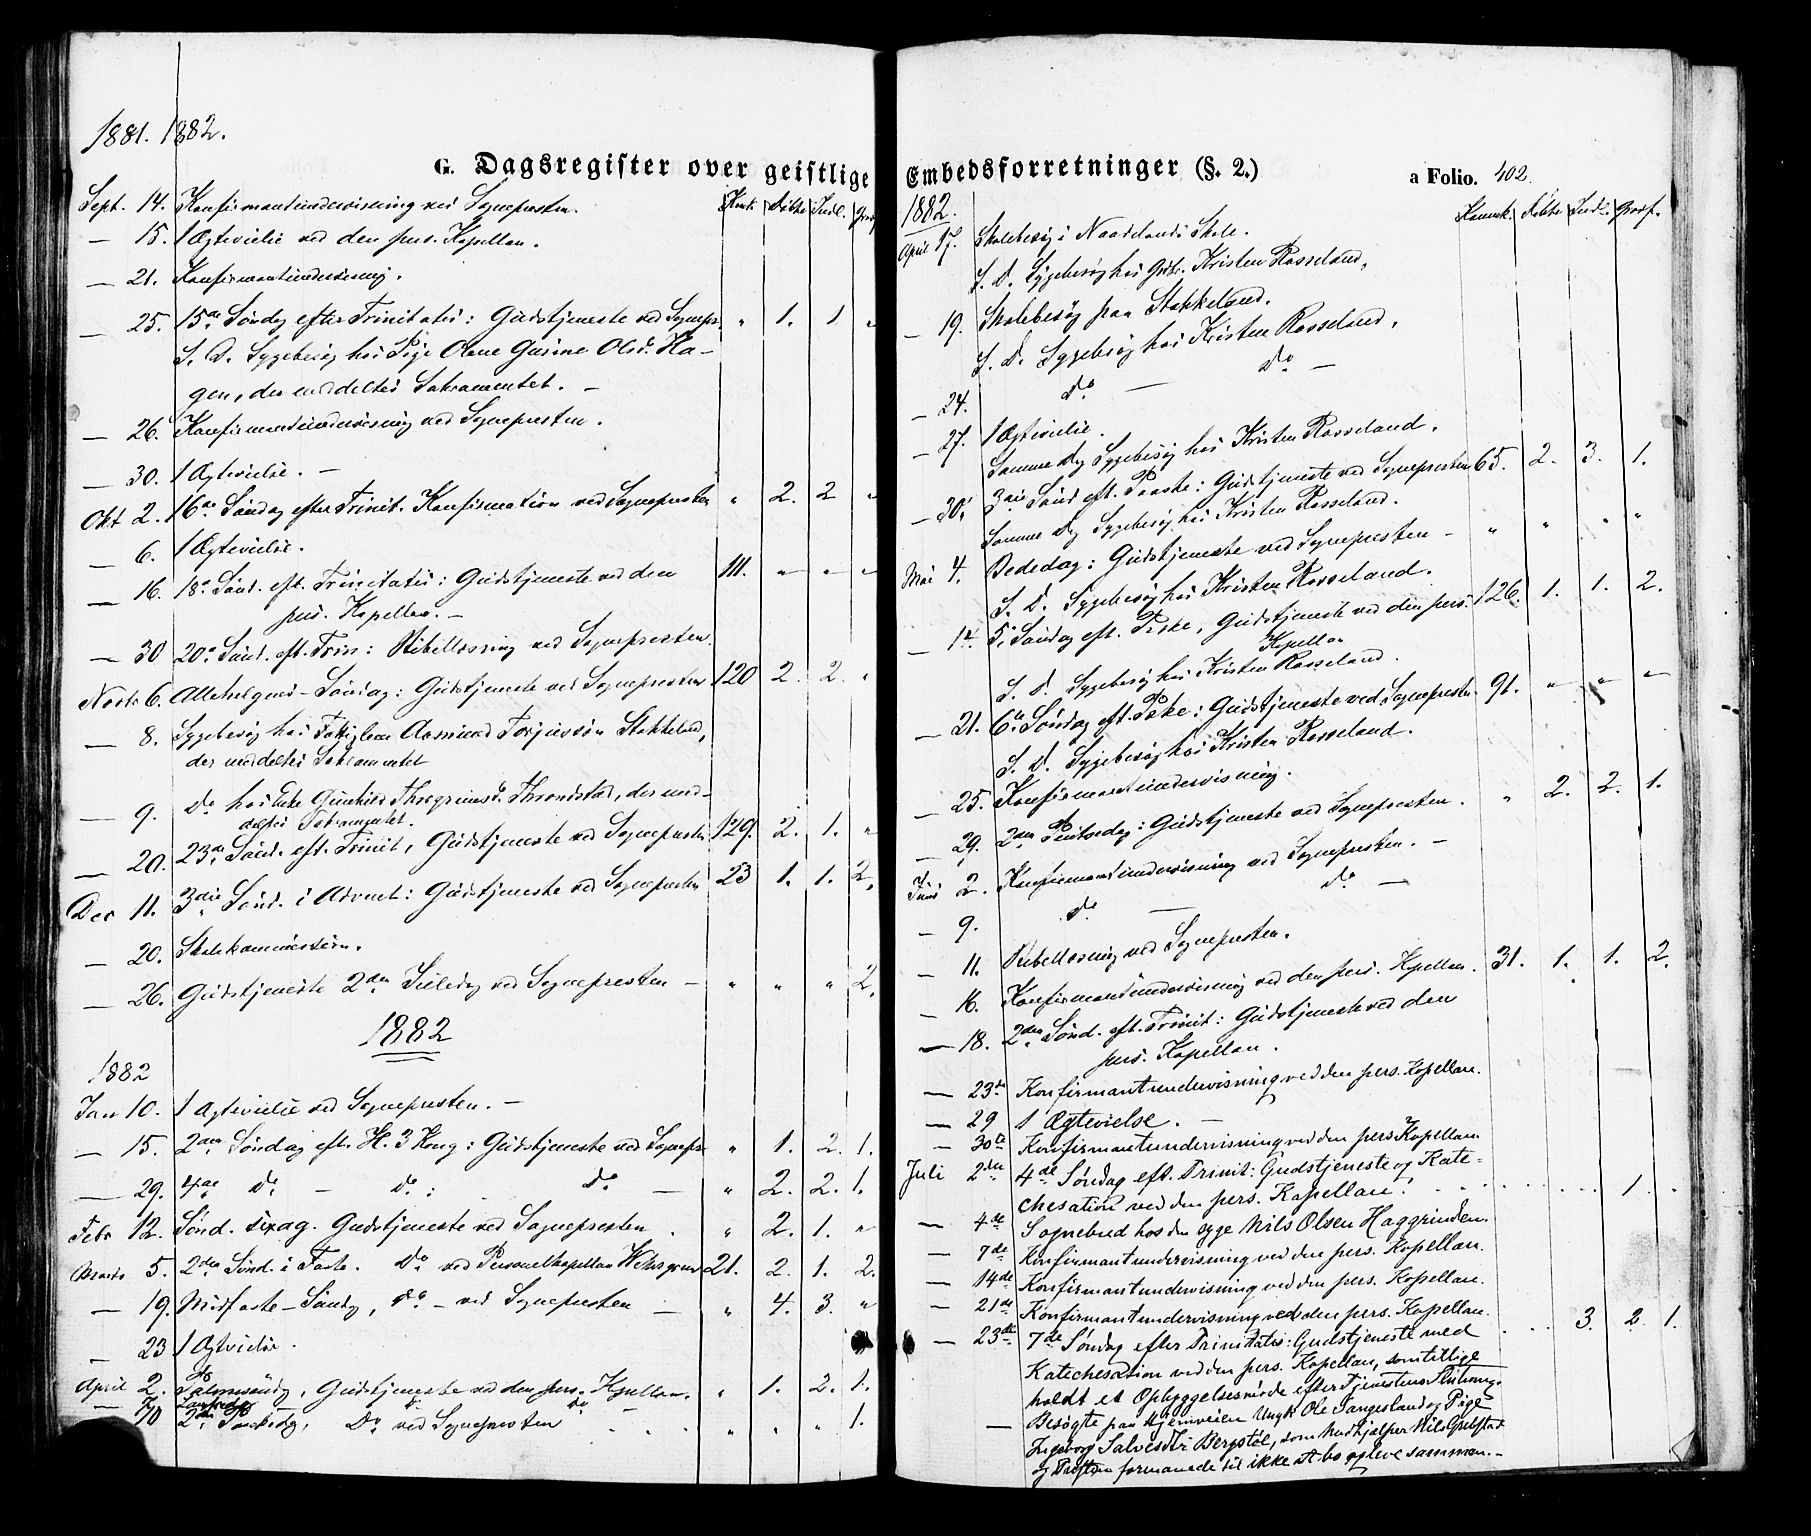 1881. 1882.
G. Dagsregister over geistlige
Komk. Døbte Indl. Gravf.
Sept. 14. Konfirmantundervisning ved Sognepresten.
— 15. 1 Ægtevielse ved den pers. Kapellan.
— 21. Konfirmantundervisning.
— 25. 15de Søndag efter Trinitatis: Gudstjeneste ved Sognepr. " 1. 1 "
S. D. Sygebesøg hos Pige Olsd. Ha-
gen, der meddeltes Sakramentet. —
— 26. Konfirmantundervisning ved Sognepresten.
— 30. 1 Ægtevielse. —
Okt 2. 16de Søndag efter Trinit. Konfirmation ved Sognepresten " 2. 2 "
— 6. 1 Ægtevielse.
— 16. 18de Sønd. eft. Trinitatis: Gudstjeneste ved den 111. " " "
pers. Kapellan. —
— 30 20de Sønd. eft. Trin: Bibellæsning ved Sognepresten.
Novbr 6. Allehelgens-Søndag: Gudstjeneste ved Sognepresten 120 2. 2. "
— 8. Sygebesøg hos Aasmund Torjussøn Stakkeland,
der meddeltes Sakramentet
— 9. Do hos Enke Gunhild Throndstad, der med-
deltes Sakramentet.
— 20. 23de Sønd. eft. Trinit, Gudstjeneste ved Sognepresten 129. 2. 1. "
Dec 11. 3die Sønd. i Advent: Gudstjeneste ved Sognepresten 23 1. 1. 2.
— 20. Skolekommission.
— 26. Gudstjeneste 2den Juledag ved Sognepresten — " " " 2.
1882
1882
Jan 10. 1 Ægtevielse ved Sognepresten. —
— 15. 2den Søndag eft. H. 3 Kong: Gudstjeneste ved Sognepr " 1. 2. 1.
— 29. 4de do — do: do — " 2. 2. 1.
Febr 12. Sønd. sexag. Gudstjeneste ved Sognepresten . " 2. 1. "
Marts 5. 2den Sønd. i Faste. Do ved Personelkapellan 21. 2. 1. 2.
— 19. Midfaste-Søndag, do — ved Sognepresten — " 4. 3. "
— 23 1 Ægtevielse.
April 2. Palmesøndag, Gudstjeneste ved den pers. Kapellan. " 1. 2. 1.
— 10 2den Paaskedag, Do ved Sognepresten " " " 1.
Embedsforretninger (§. 2.)
a Folio. 402.
1882.
Komk. Døbte Indl. Gravf.
April 17. Skolebesøg i Naadelands Skole.
S. D. Sygebesøg hos Gbr. Kristen Rosseland,
— 19. Skolebesøg paa Stakkeland.
S. D. Sygebesøg hos Kristen Rosseland,
— 24. do — do —
— 27. 1 Ægtevielse.
Samme Dag Sygebesøg hos Kristen Rosseland.
— 30. 3die Sønd eft. Paaske: Gudstjeneste ved Sognepresten 65. 2. 3. 1.
Samme Dag Sygebesøg hos Kristen Rosseland.
Mai 4. Bededag: Gudstjeneste ved Sognepresten — " " " "
S. D. Sygebesøg hos Kristen Rosseland.
— 14. 5te Søndag eft. Pske, Gudstjeneste ved den pers. 126. 1. 1. 2.
Kapellan
S. D. Sygebesøg hos Kristen Rosseland.
— 21. 6te Søndag eft. Pske: Gudstjeneste ved Sognepresten 91. " " "
S. D. Sygebesøg hos Kristen Rosseland.
— 25. Konfirmantundervisning.
— 29. 2den Pintsedag: Gudstjeneste ved Sognepresten. " 2. 2. 1.
Juni 2. Konfirmantundervisning ved Sognepresten. —
— 9. do — do —
— 11. Bibellæsning ved Sognepresten.
— 16. Konfirmantundervisning ved den pers. Kapellan. 31. 1. 1. 2.
— 18. 2den Sønd. eft. Trinit: Gudstjeneste ved den
pers. Kapellan.
— 23de Konfirmantundervisning ved den pers. Kapellan.
— 29 1 Ægtevielse. —
— 30te Konfirmantundervisning ved den pers Kapellan.
Juli 2den 4de Søndag eft. Trinit: Gudstjeneste og Kate-
chesation ved den pers. Kapellan. 1. "
— 4de Sognebud hos den syge Nils Olsen Haggrinden.
— 7de Konfirmantundervisning ved den pers. Kapellan.
— 14de Konfirmantundervisning ved den pers. Kapellan.
— 21de Konfirmantundervisning ved den pers. Kapellan.
— 23de 7de Søndag efter Trinitatis: Gudstjeneste med 3. 2. 1.
Katechesation ved den pers. Kapellan, som tillige
holdt et Opbyggelsesmøde efter Tjenestens Slutning.
— Besøgte paa Hjemveien Ungk Ole Tangesland og Pige
Ingeborg Salvesdtr Bergstøl, som Medhjælper Nils
og Presten formanede til ikke at bo og leve sammen. —